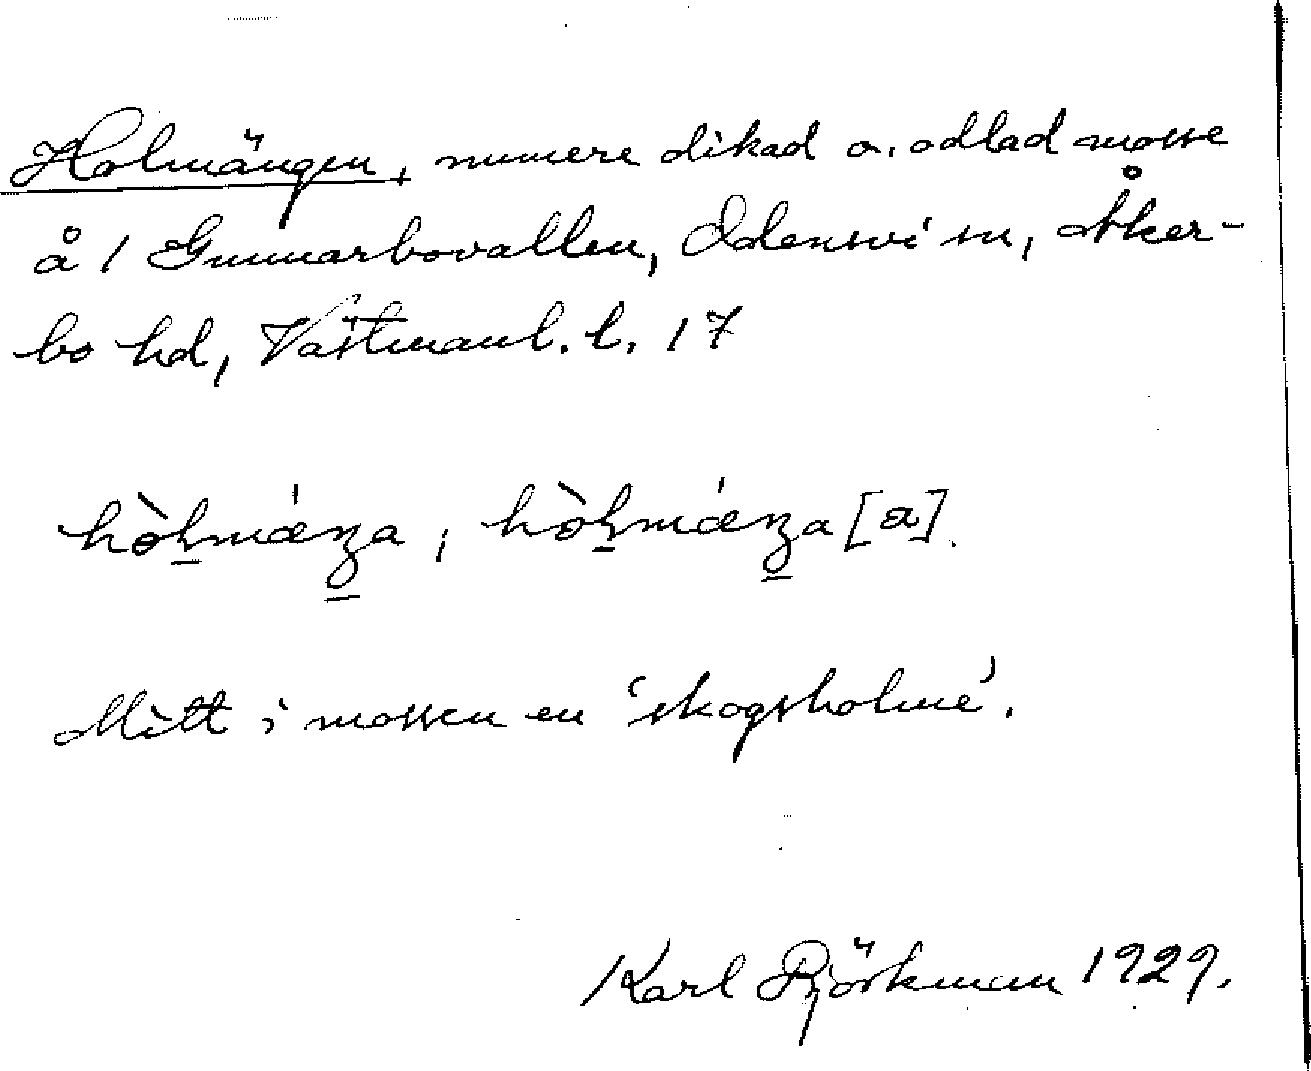 Holmängen, numere dikad o. odlad mosse
å 1 Gunnarbovallen, Odensvi sn, Åker-
bo hd, Västmanl. l. 17
Mitt i mossen en 'skogsholme'.
Karl Björkman 1929.